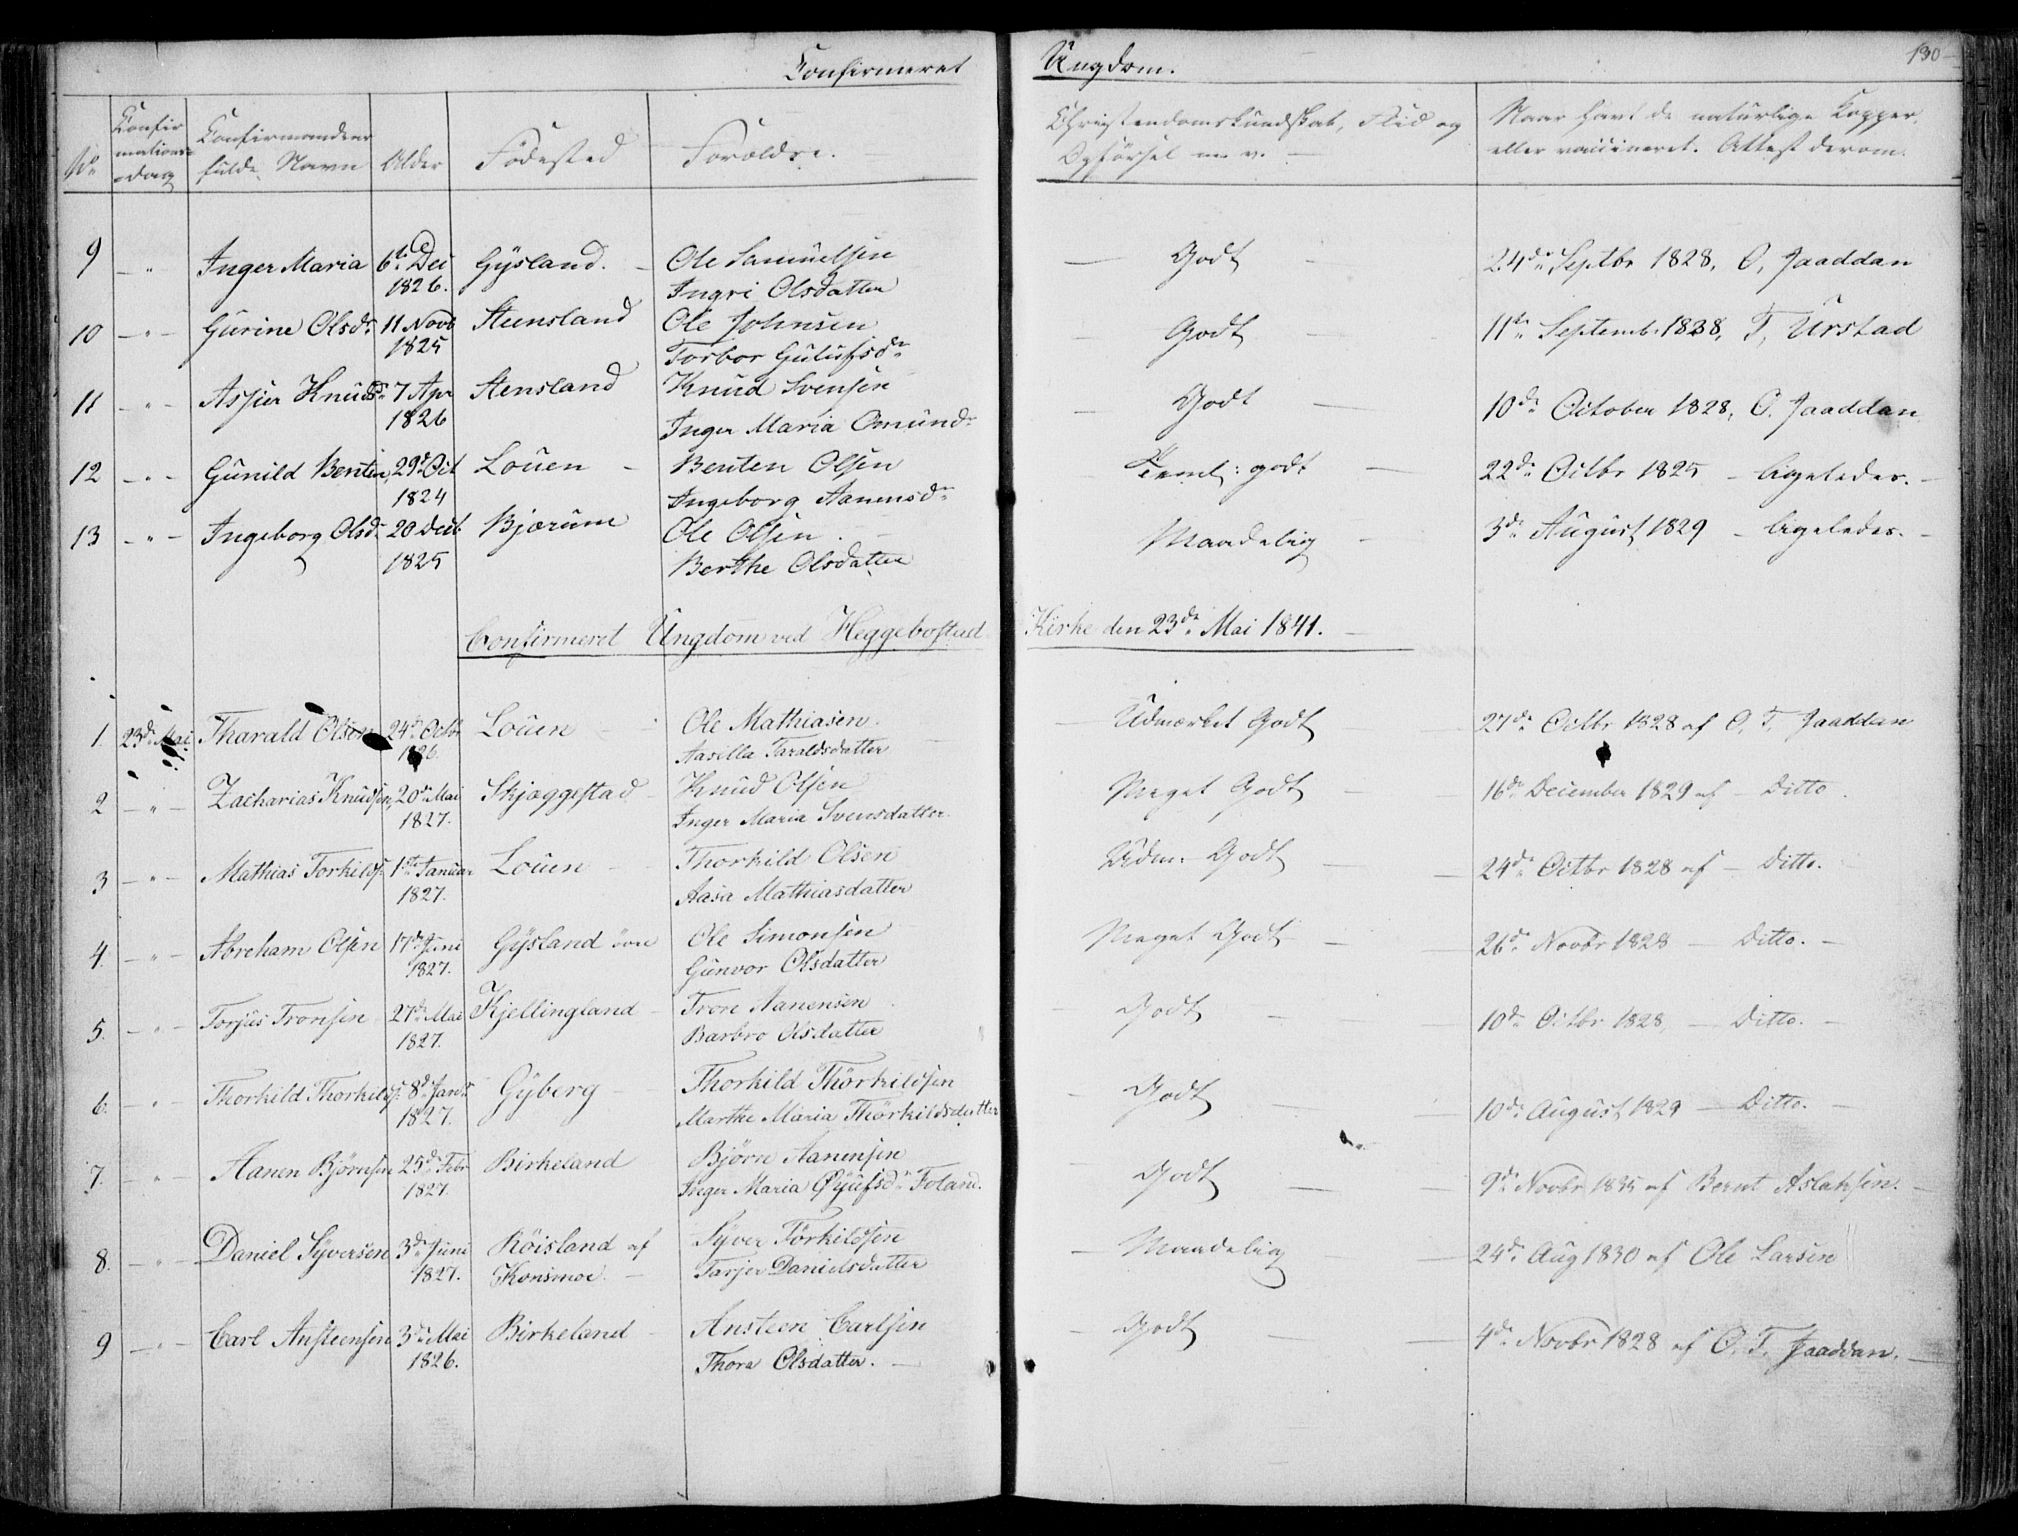 Confirmeret Ungdom. 130
No Confirmationsdag Confirmandens fulde Navn Alder Fødested Forældre. Christendomskundskab, Flid og Opførsel m. v. Naar havt de naturlige Kopper, eller vaccineret. Attest derom.
9 – " Inger Maria 6te Dec 1826. Gÿsland. – Ole Samuelsen Ingri Olsdatter – Godt – 24de Septbr 1828, O. Jaaddan
10 – " – Gurine Olsdr 11 Novb 1825 Steensland Ole Johnsen Torbor Gulufsdr – Godt 11te Septemb. 1828, T. Urstad
11 – " – Assier Knudsdr 7 Apr 1826 Stensland Knud Svensen Inger Maria Omundr – Godt – 10de October 1828, O. Jaaddan
12 – " – Gunild Benten 29de Oct 1824 Louen – Benten Olsen Ingeborg Aanensdr Teml: godt – 22de Octbr 1825 – ligeledes. –
13 – " – Ingeborg Olsdr 20 Decb 1825 Bjærum Ole Olsen. Berthe Olsdatter Maadelig – 3de August 1829 – ligeledes. –
Confirmeret Ungdom ved Heggebostad Kirke den 23de Mai 1841. –
1. 23de Mai Tharald Olsen 24de Octbr 1826. Louen Ole Mathiasen. Aasille Taraldsdatter – Udmærket Godt – 27de Octbr 1828 af O. T. Jaaddan
2 – " – Zacharias Knudsen, 20de Mai 1827. Skjæggestad Knud Olsen Inger Maria Svensdatter. Meget Godt – 16de December 1829 af – Ditto.
3 – " – Mathias Torkilds. 1ste Januar 1827. Louen – Thorkild Olsen Aasa Mathiasdatter Udm. Godt – 24de Octbr 1828 af – Ditto.
4. – " – Abreham Olsen 17de Juni 1827. Gÿsland øvre Ole Simonsen Gunvor Olsdatter Meget Godt – 26de Novbr 1828 – Ditto. –
5. – " – Torjus Tronsen 27de Mai 1827. Kjellingland – Tron Aanensen Barbro Olsdatter Godt – 10de Octbr 1828, – Ditto. –
6. – " – Thorkild Thorkilds. 8de Janr 1827. Gÿberg – Thorkild Thorkildsen Marthe Maria Thorkildsdatter – Godt – 10de August 1829 – Ditto. –
7. – " – Aanen Bjørnsen 25de Febr 1827. Birkeland Bjørn Aanensen Inger Maria Øÿufsdr Foland. – Godt – 9de Novbr 1835 af Bernt Aslaksen. –
8. – " – Daniel Sÿversen 3de Juni 1827. Röisland af Konsmoe. – Sÿver Törkildsen Tarjer Danielsdatter – Maadelig – 24de Aug 1830 af Ole Larsen
9 – " – Carl Ansteensen 3de Mai 1826. Birkeland – Ansteen Carlsen Thore Olsdatter. – – Godt – 4de Novbr 1828 af O. T. Jaaddan. –